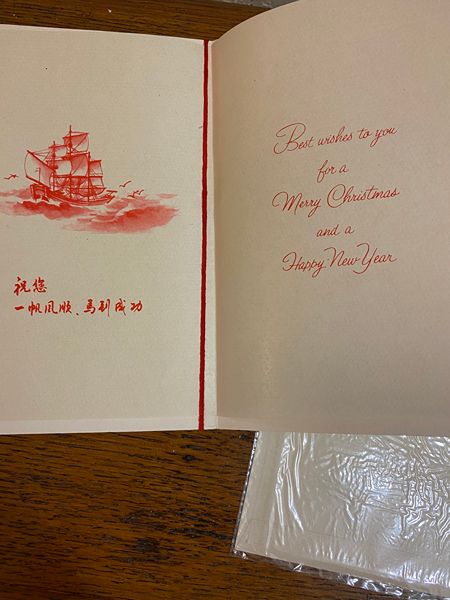 祝您
一帆风顺、马到成功
Best wishes to you
for a
Merry Christmas
and a
Happy New Year